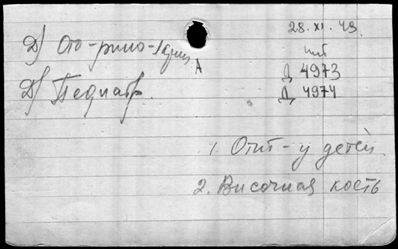 28.XI.49.
Д) Ото-рино-
шт
А
Д 4973
Д) Педиатр.
Д 4974
1. Отит - у детей
2. Височная кость